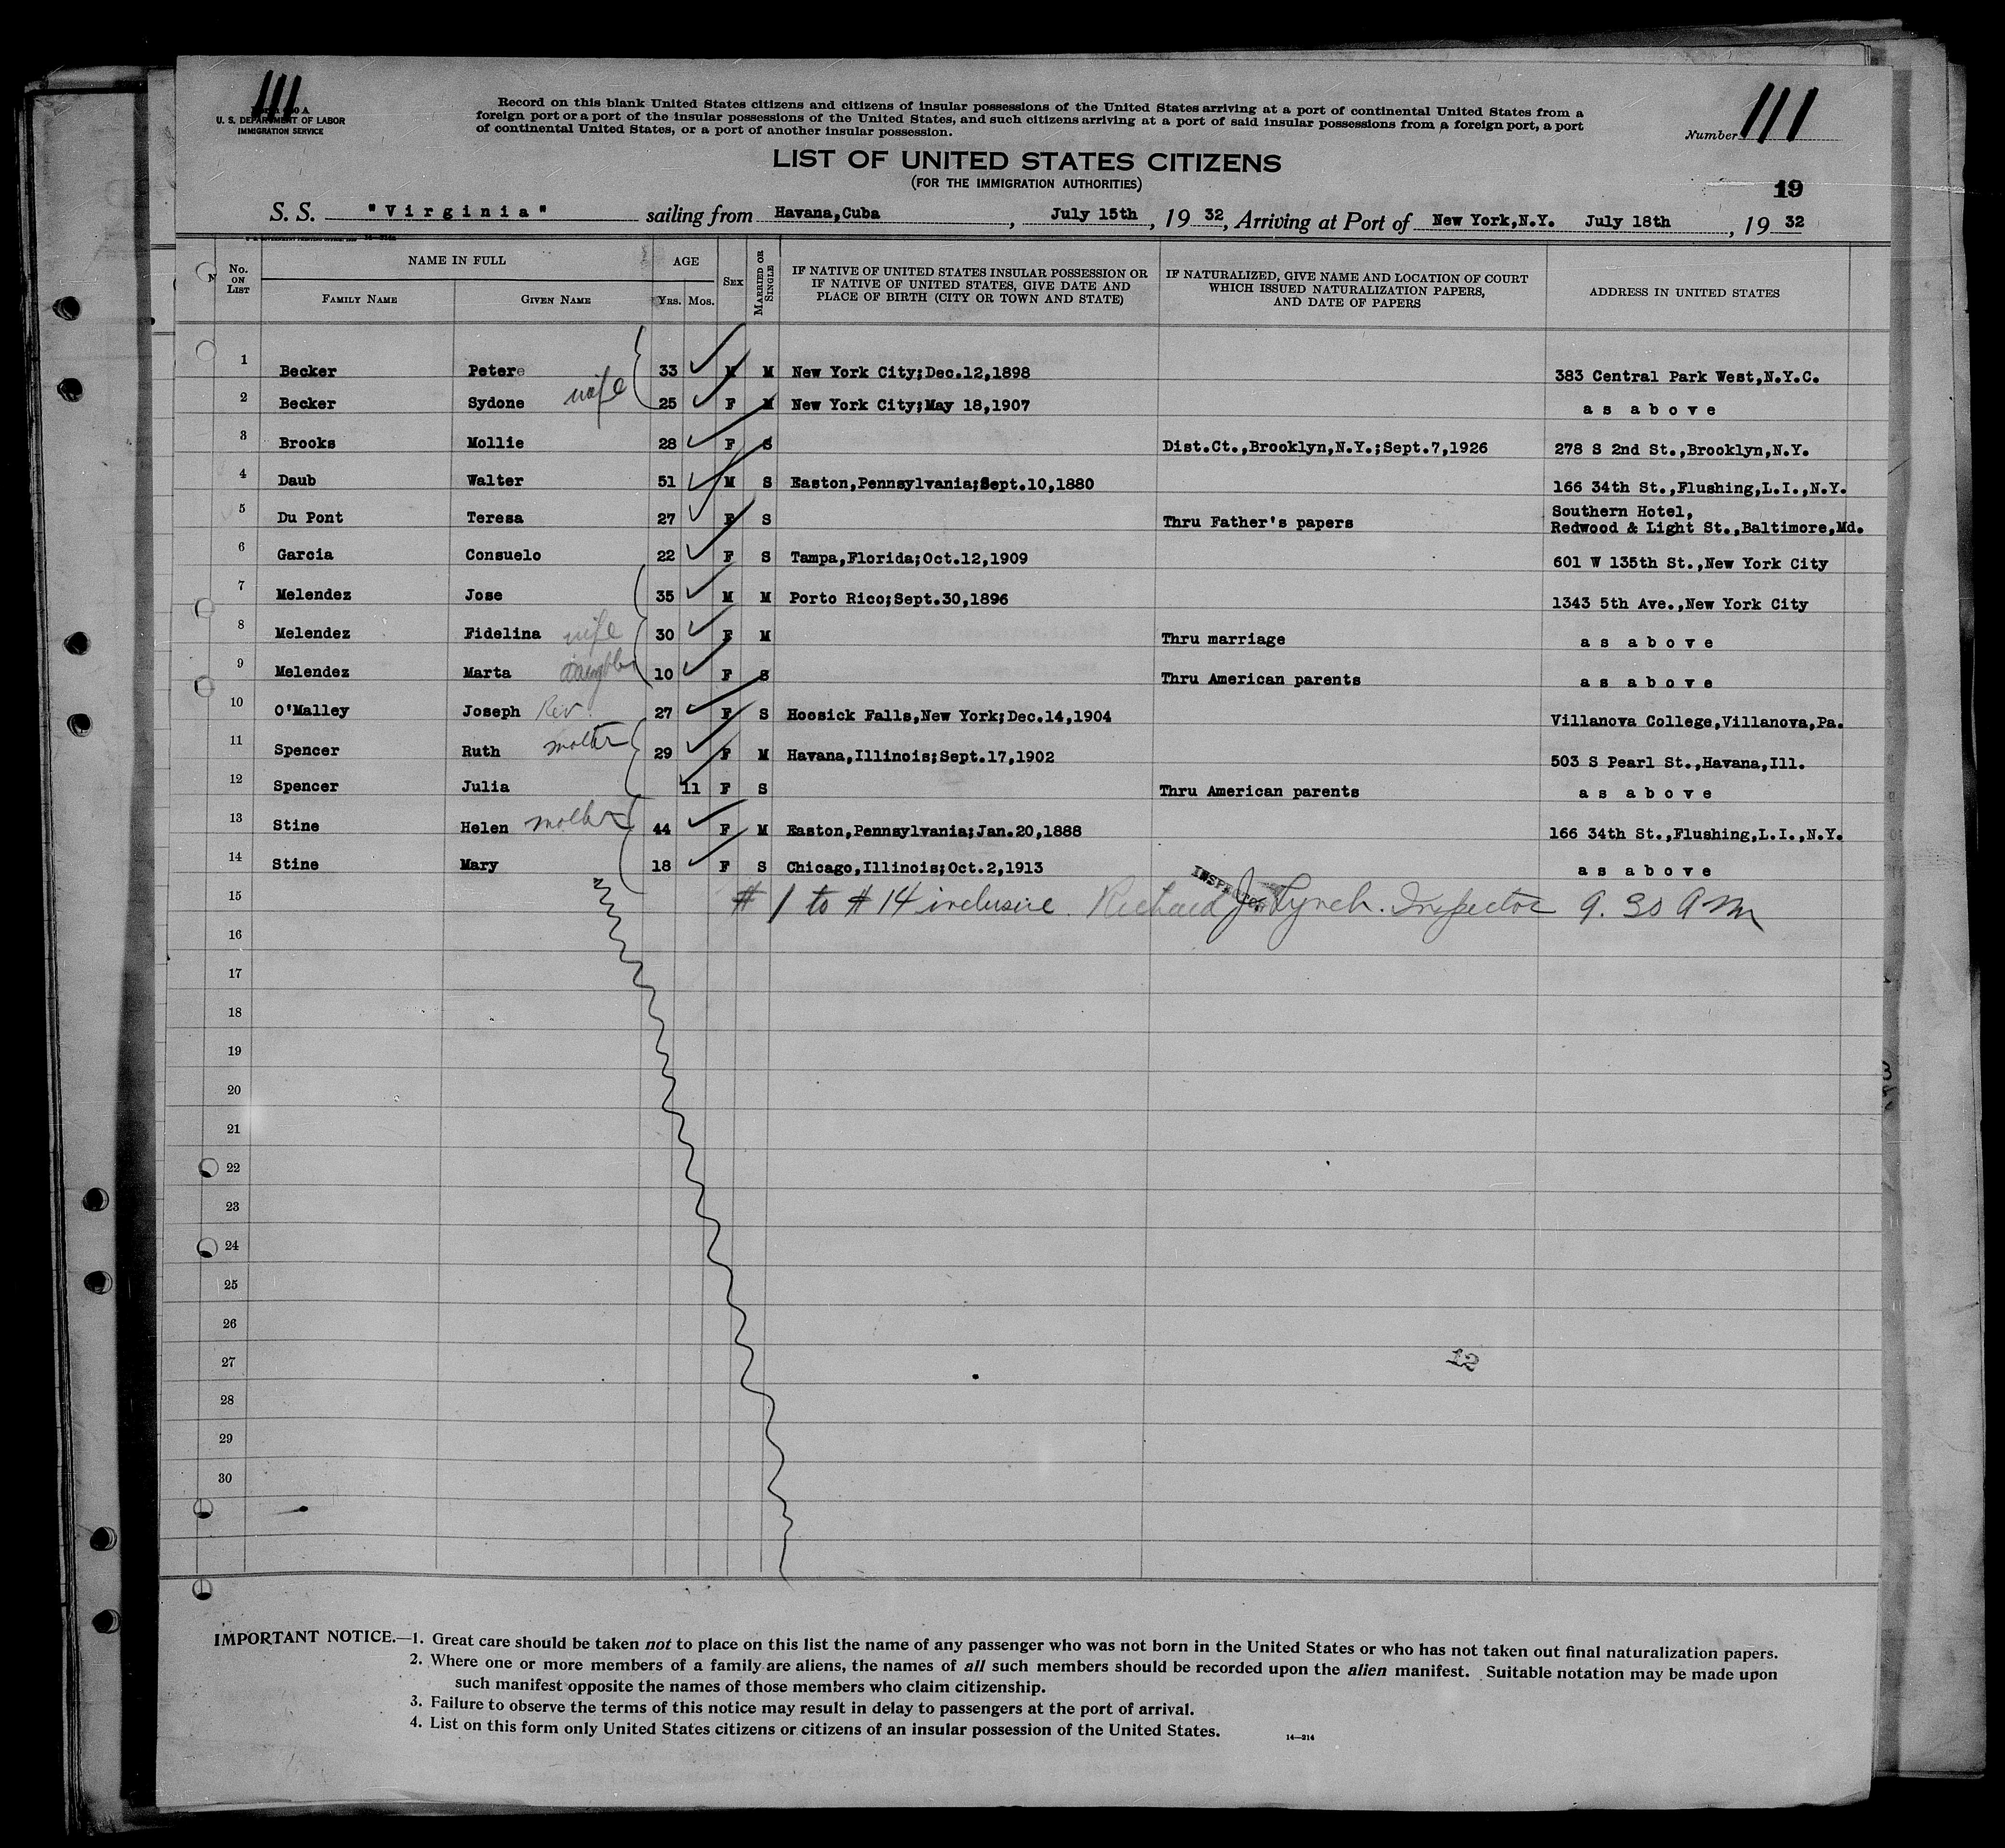 111
U. S. DEPARTMENT OF LABOR
IMMIGRATION SERVICE
Record on this blank United States citizens and citizens of insular possessions of the United States arriving at a port of continental United States from a
foreign port or a port of the insular possessions of the United States, and such citizens arriving at a port of said insular possessions from a foreign port, a port
of continental United States, or a port of another insular possession.
Number 111
LIST OF UNITED STATES CITIZENS
(FOR THE IMMIGRATION AUTHORITIES)
19
S. S. "Virginia" sailing from Havana,Cuba, July 15th, 19 32, Arriving at Port of New York,N.Y. July 18th, 19 32
No. ON LIST
NAME IN FULL
FAMILY NAME
GIVEN NAME
AGE
YRS. MOS.
SEX
MARRIED OR SINGLE
IF NATIVE OF UNITED STATES INSULAR POSSESSION OR
IF NATIVE OF UNITED STATES, GIVE DATE AND
PLACE OF BIRTH (CITY OR TOWN AND STATE)
IF NATURALIZED, GIVE NAME AND LOCATION OF COURT
WHICH ISSUED NATURALIZATION PAPERS,
AND DATE OF PAPERS
ADDRESS IN UNITED STATES
1 Becker Petere 33 M M New York City;Dec.12,1898 383 Central Park West,N.Y.C.
2 Becker Sydone wife 25 F M New York City;May 18,1907 as above
3 Brooks Mollie 28 F S Dist.Ct.,Brooklyn,N.Y.;Sept.7,1926 278 S 2nd St.,Brooklyn,N.Y.
4 Daub Walter 51 M S Easton,Pennsylvania;Sept.10,1880 166 34th St.,Flushing,L.I.,N.Y.
5 Du Pont Teresa 27 F S Thru Father's papers Southern Hotel,
Redwood & Light St.,Baltimore,Md.
6 Garcia Consuelo 22 F S Tampa,Florida;Oct.12,1909 601 W 135th St.,New York City
7 Melendez Jose 35 M M Porto Rico;Sept.30,1896 1343 5th Ave.,New York City
8 Melendez Fidelina wife 30 F M Thru marriage as above
9 Melendez Marta daughter 10 F S Thru American parents as above
10 O'Malley Joseph Rev. 27 F S Hoosick Falls,New York;Dec.14,1904 Villanova College,Villanova,Pa.
11 Spencer Ruth mother 29 F M Havana,Illinois;Sept.17,1902 503 S Pearl St.,Havana,Ill.
12 Spencer Julia 11 F S Thru American parents as above
13 Stine Helen mother 44 F M Easton,Pennsylvania;Jan.20,1888 166 34th St.,Flushing,L.I.,N.Y.
14 Stine Mary 18 F S Chicago,Illinois;Oct.2,1913 as above
INSPECTOR
15 # 1 to # 14 inclusive. Richard J. Lynch. Inspector 9.30 AM
16
17
18
19
20
21
22
23
24
25
26
27 12
28
29
30
IMPORTANT NOTICE.—1. Great care should be taken not to place on this list the name of any passenger who was not born in the United States or who has not taken out final naturalization papers.
2. Where one or more members of a family are aliens, the names of all such members should be recorded upon the alien manifest. Suitable notation may be made upon
such manifest opposite the names of those members who claim citizenship.
3. Failure to observe the terms of this notice may result in delay to passengers at the port of arrival.
4. List on this form only United States citizens or citizens of an insular possession of the United States.
14—214